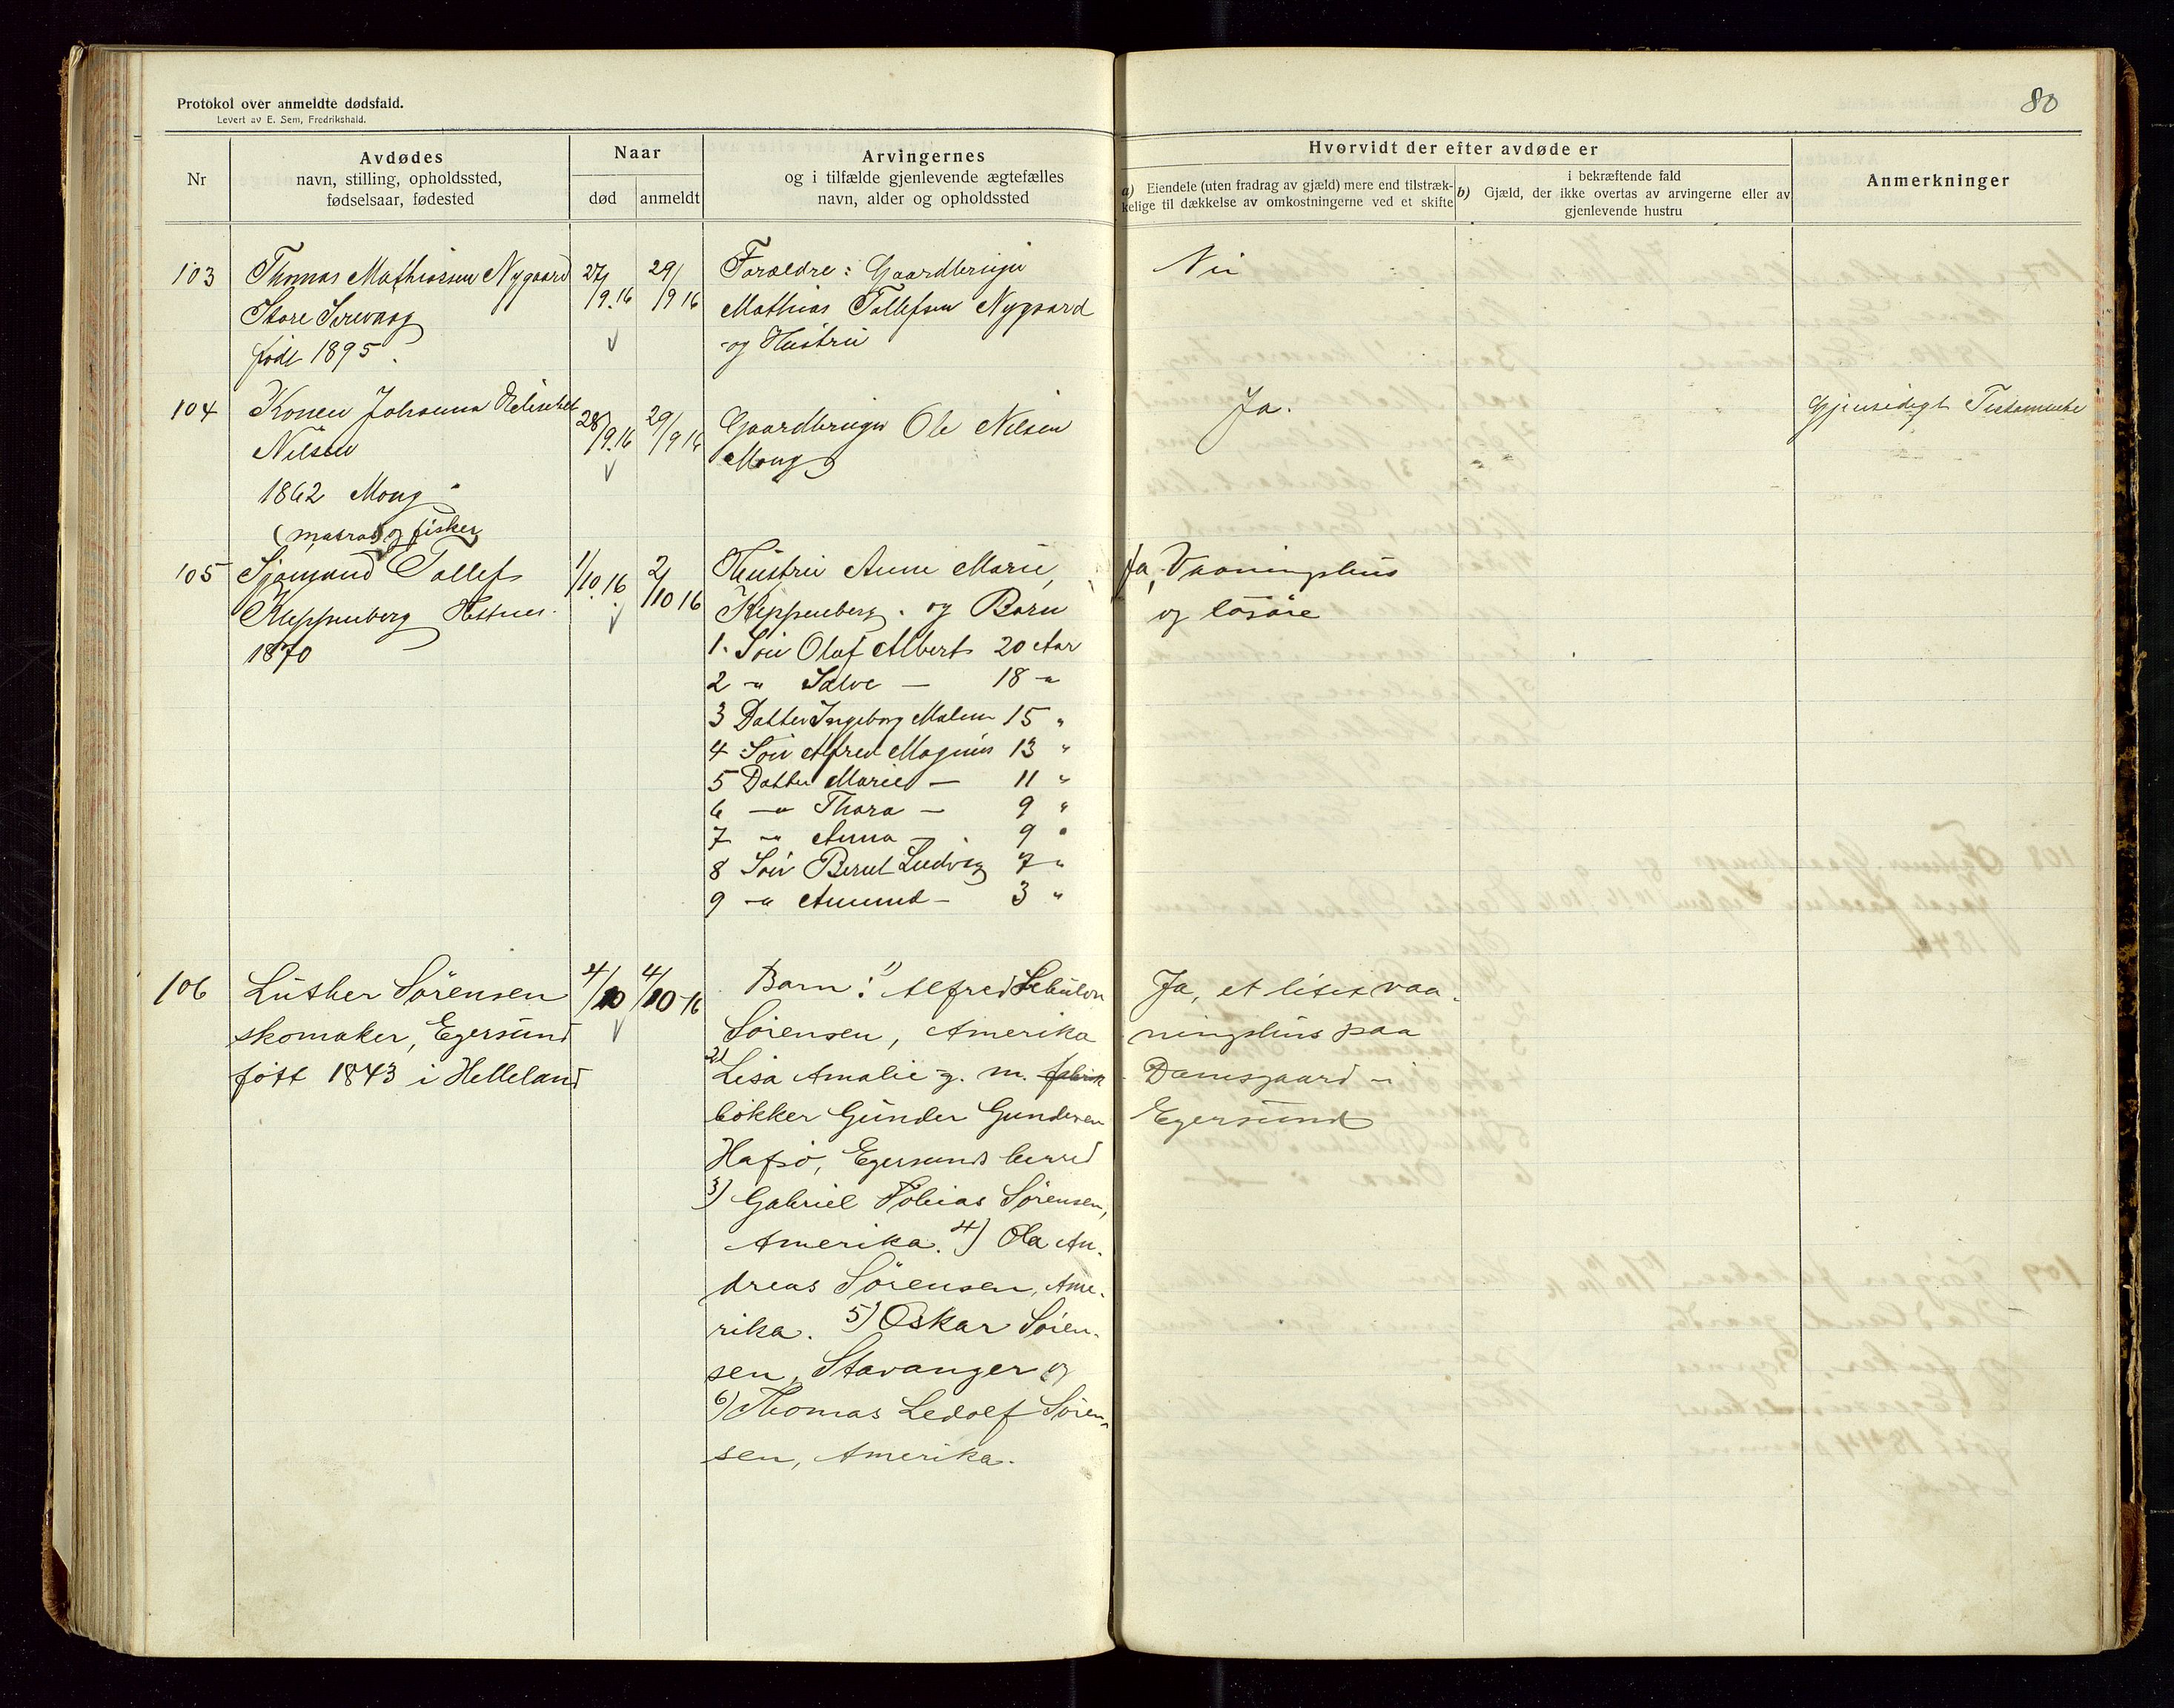 Protokol over anmeldte dødsfald.
Levert av E. Sem, Fredrikshald.
80
Nr
Avdødes
navn, stilling, opholdssted,
fødselsaar, fødested
Naar
død
anmeldt
Arvingernes
og i tilfælde gjenlevende ægtefælles
navn, alder og opholdssted
Hvorvidt der efter avdøde er
a) Eiendele (uten fradrag av gjæld) mere end tilstræk-
kelige til dækkelse av omkostningerne ved et skifte
i bekræftende fald
b) Gjæld, der ikke overtas av arvingerne eller av
gjenlevende hustru
Anmerkninger
103
Thomas Mathiassen Nygaard
Store Sirevaag
født 1895.
27/9.16
29/9 16
Forældre: Gaardbruger
Mathias Tollefsen Nygaard
og Hustru
Nei
104
Konen Johanna Elisabet
Nilsen
1862 Mong
28/9.16
29/9 16
Gaardbruger Ole Nilsen
Mong
Ja.
Gjensidigt Testamente
105
(matros og fisker)
Sjømand Tollef
Kleppenberg
1870
1/10.16
2/10 16
Hustru Anne Marie
Kleppenberg. og Børn
1. Søn Olaf Albert 20 Aar
2 -" Salve — 18 -"
3 Datter Ingeborg Malene 15 "
4 Søn Alfred Magnus 13 "
5 Datter Marie — 11 "
6 —" Thora — 9 "
7 —" Anna — 9 "
8 Søn Berent Ludvig 7 "
9 -" Amund — 3 "
Ja, Vaaningshus
og løsøre
106
Luther Sørensen
skomaker, Egersund
født 1843 i Helleland
4/10
4/10-16
Barn: 1) Alfred Sebulon
Sørensen, Amerika
2) Lisa Amalie g. m. fabrik
bøkker Gunder Gundersen
Hafsø, Egersunds herred
3) Gabriel Tobias Sørensen,
Amerika. 4) Ola An-
dreas Sørensen, Ame-
rika. 5) Oskar Søren-
sen, Stavanger og
6) Thomas Ledolf Søren-
sen, Amerika.
Ja, et litet vaa-
ningshus paa
Damsgaard i
Egersund